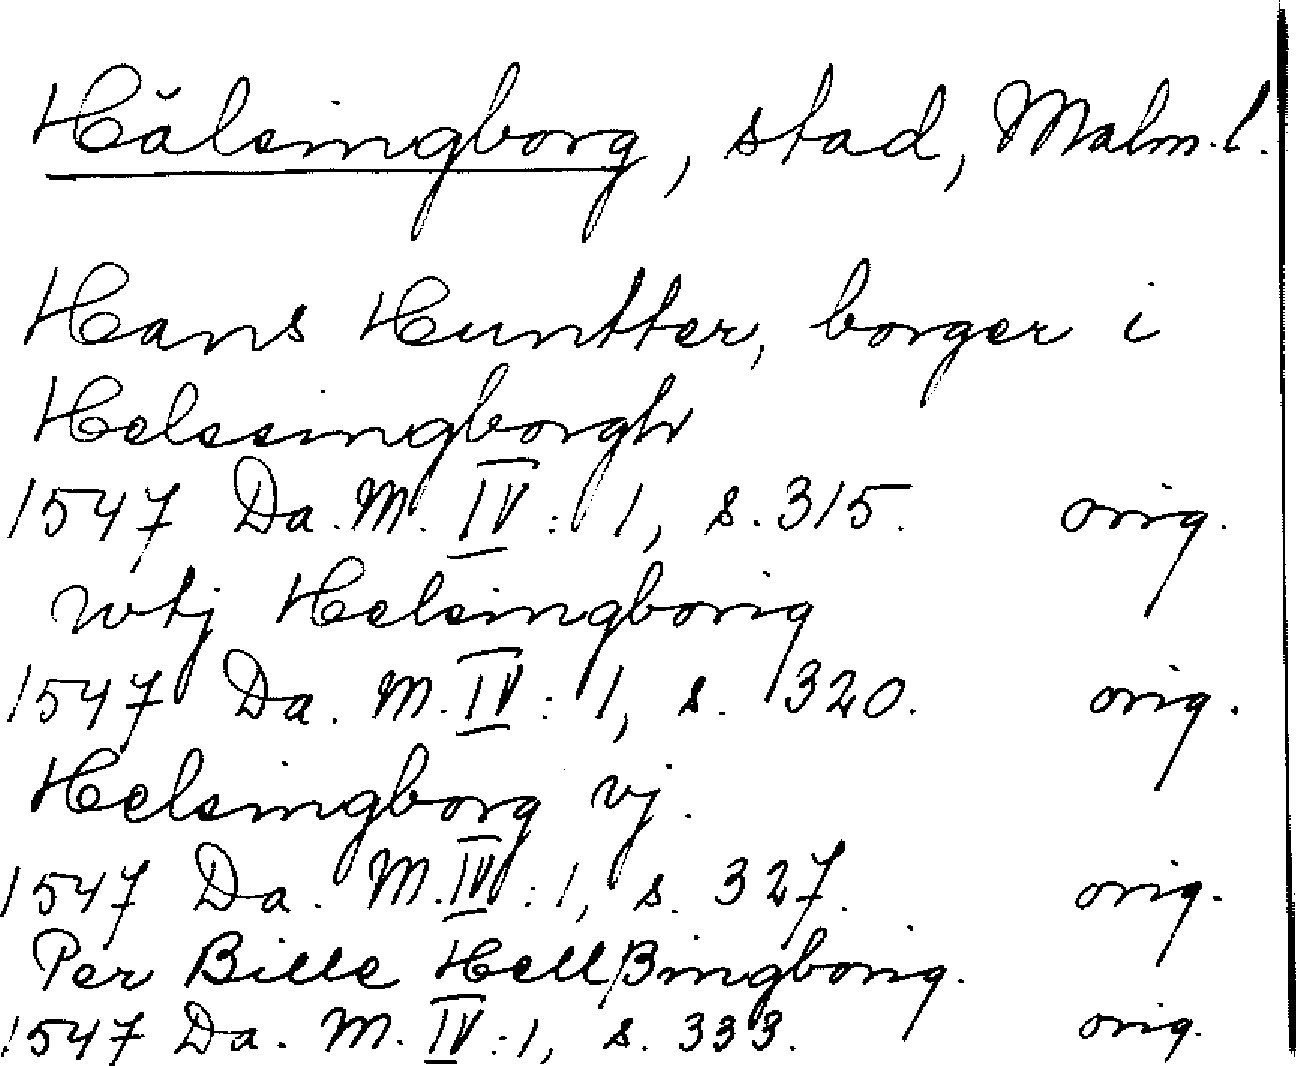 Hälsingborg, stad, Malm. l.
Hans Huntter, borger i
Helssingborgh
1547 Da. M. IV: 1, s. 315. orig.
wtj Helsingborig
1547 Da. M. IV: 1, s. 320. orig.
Helsingborg vj.
1547 Da. M. IV: 1, s. 327. orig.
Per Bille Hellßingborig.
1547 Da. M. IV: 1, s. 333. orig.